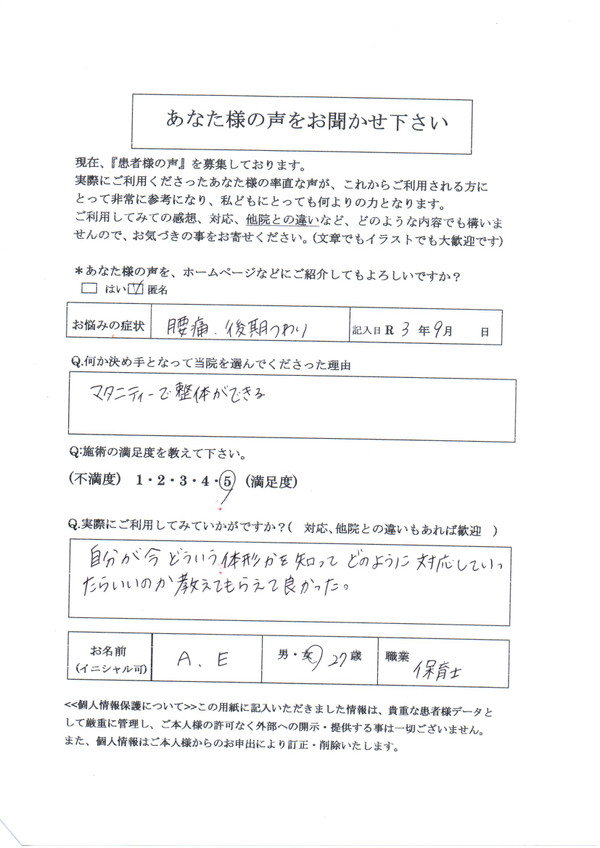 あなた様の声をお聞かせ下さい
現在、『患者様の声』を募集しております。
実際にご利用くださったあなた様の率直な声が、これからご利用される方に
とって非常に参考になり、私どもにとっても何よりの力となります。
ご利用してみての感想、対応、他院との違いなど、どのような内容でも構いま
せんので、お気づきの事をお寄せください。(文章でもイラストでも大歓迎です)
*あなた様の声を、ホームページなどにご紹介してもよろしいですか?
□ はい ☑ 匿名
お悩みの症状 腰痛、後期つわり 記入日 R 3 年 9月 日
Q.何か決め手となって当院を選んでくださった理由
マタニティーで整体ができる
Q:施術の満足度を教えて下さい。
(不満度) 1・2・3・4・5 (満足度)
Q.実際にご利用してみていかがですか?( 対応、他院との違いもあれば歓迎 )
自分が今どういう体形かを知ってどのように対応していっ
たらいいのか教えてもらえて良かった。
お名前 (イニシャル可) A.E 男・女 27歳 職業 保育士
<<個人情報保護について>>この用紙に記入いただきました情報は、貴重な患者様データと
して厳重に管理し、ご本人様の許可なく外部への開示・提供する事は一切ございません。
また、個人情報はご本人様からのお申出により訂正・削除いたします。